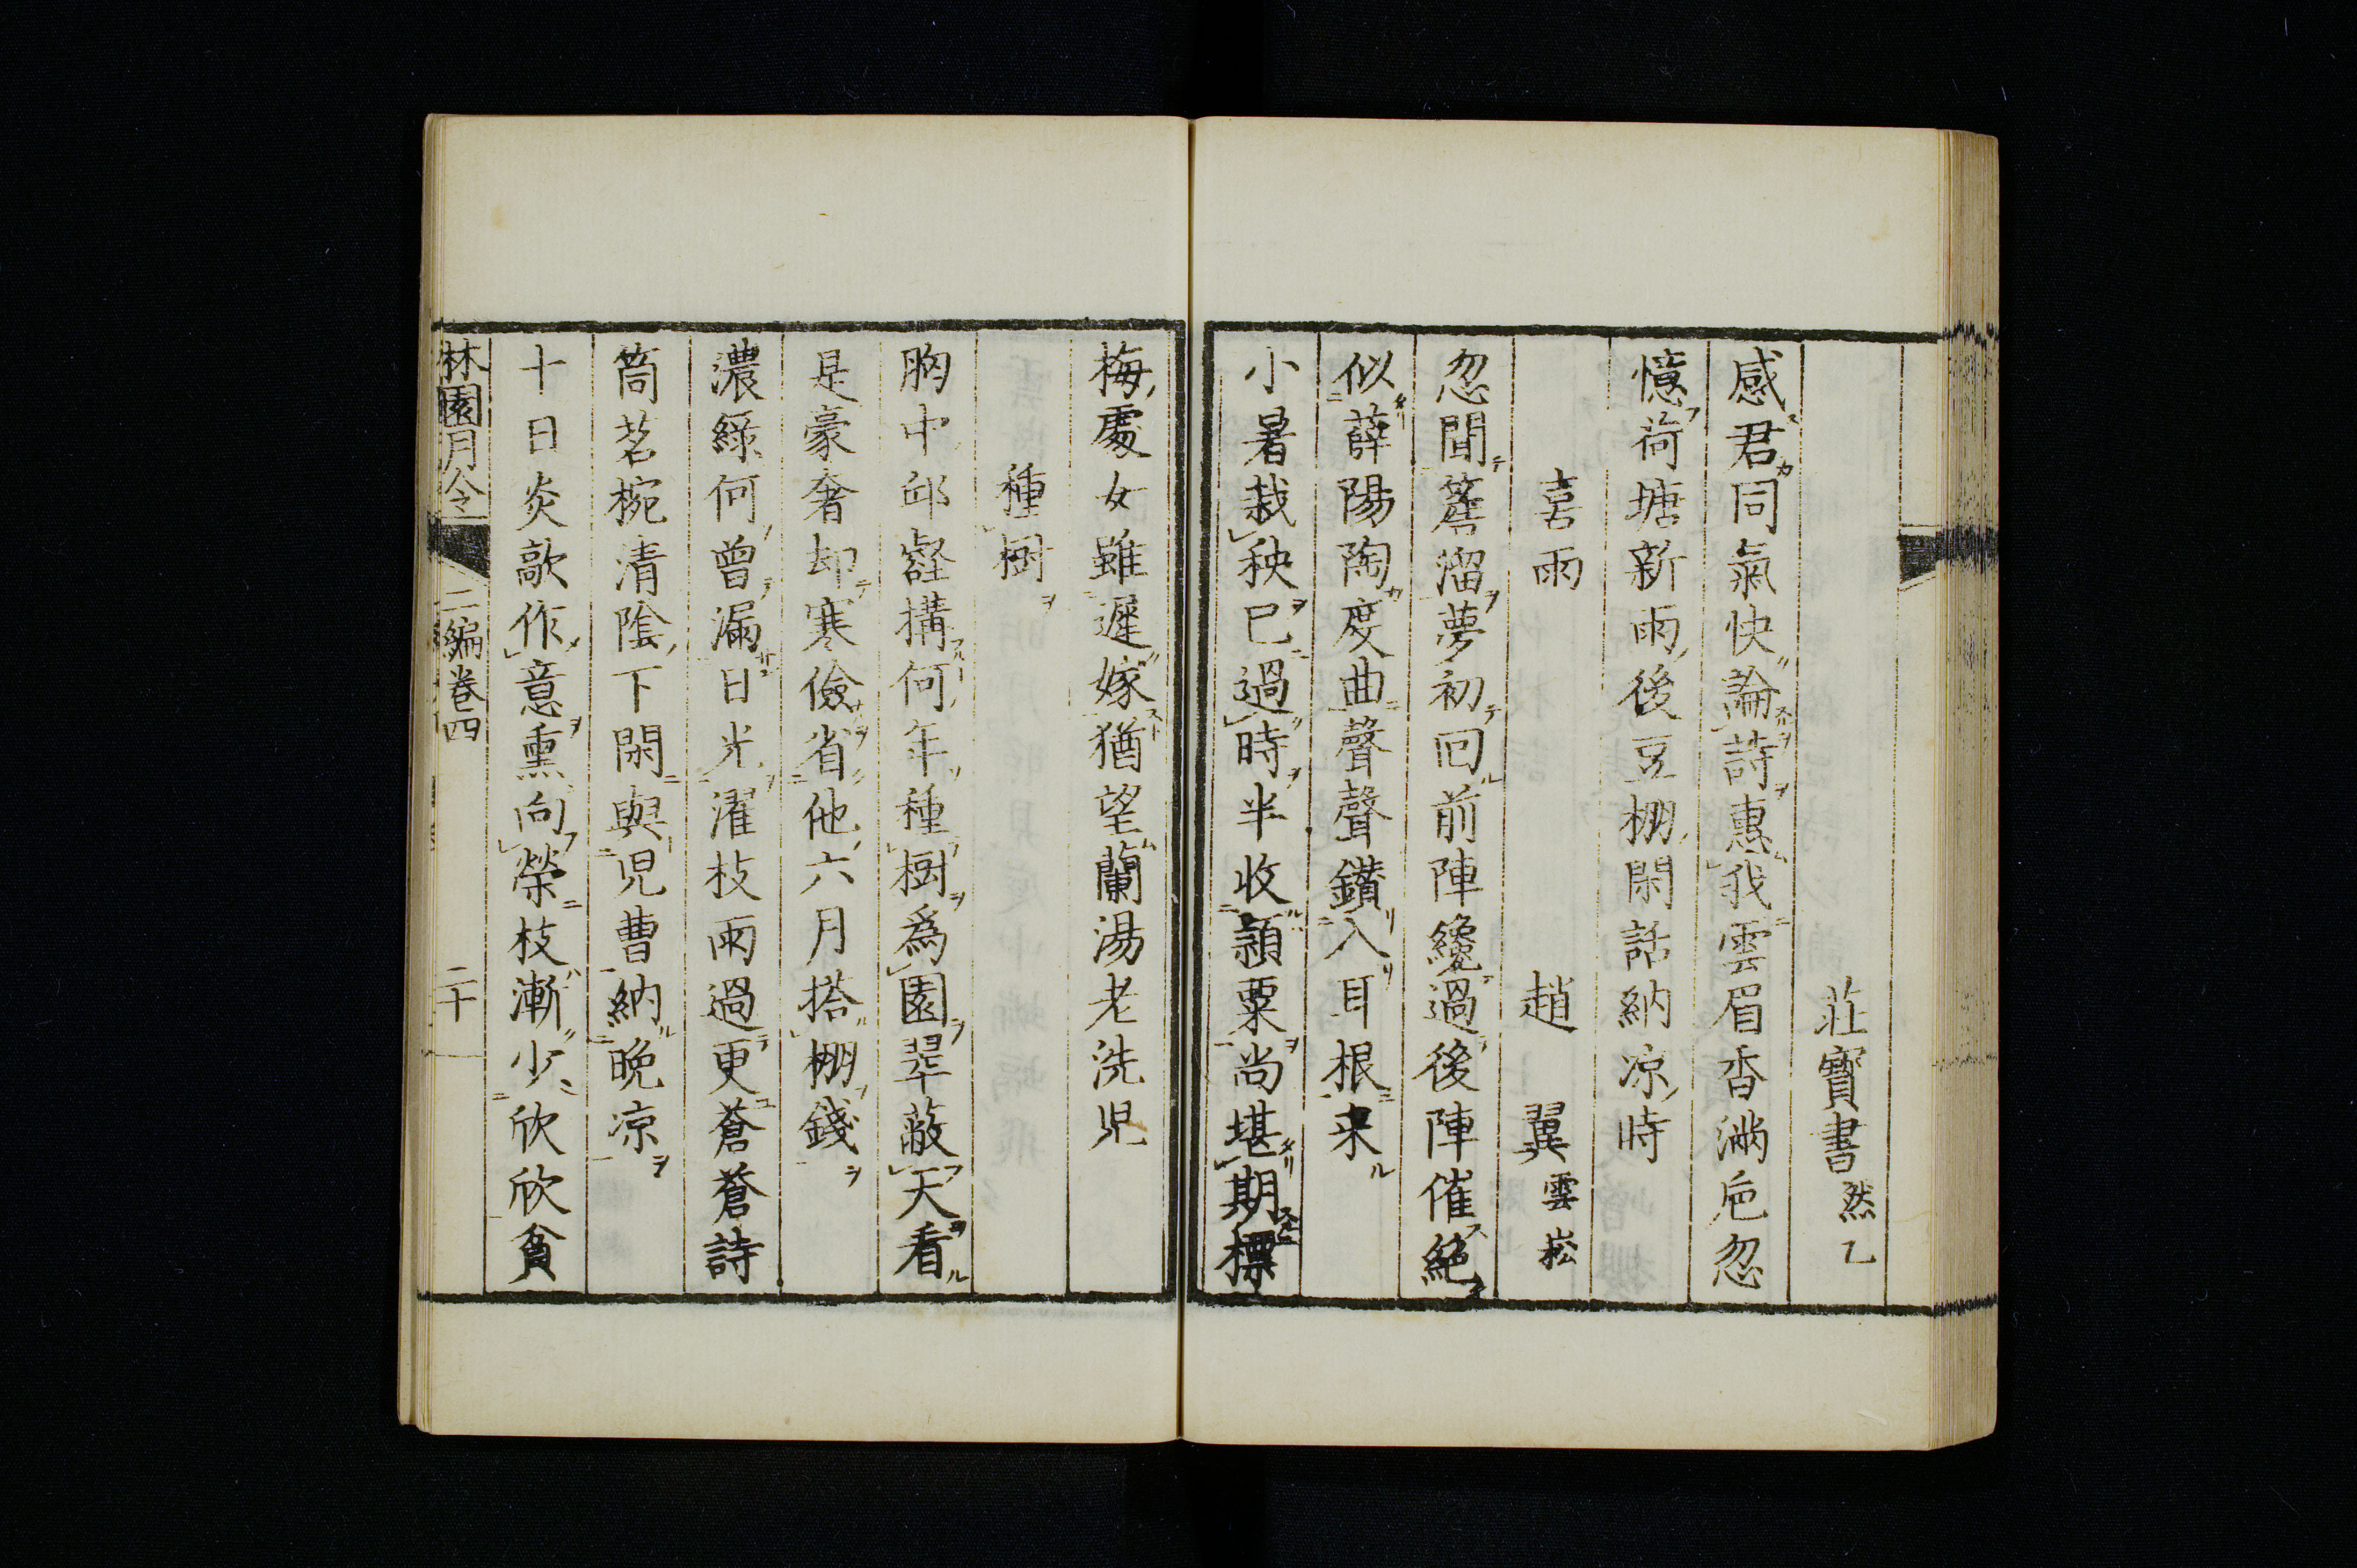 莊寶書然乙
感君同氣快論詩惠我雲眉香滿巵忽
憶荷塘新雨後豆棚閑話納凉時
喜雨 趙翼雲崧
忽聞簷溜夢初回前陣纔過後陣催絕
似薛陽陶度曲聲聲鑽入耳根來
小暑栽秧已過時半收穎粟尚堪期摽
梅處女雖遲嫁猶望蘭湯老洗児
種樹
胸中邱壑構何年種樹爲園翠蔽天看
是豪奢却寒儉省他六月搭棚錢
濃綠何曾漏日光濯枝雨過更蒼蒼詩
筒茗椀清陰下閑與児曹納晚凉
十日炎歊作意熏向榮枝漸少欣欣貪
林園月令 二編卷四 二十